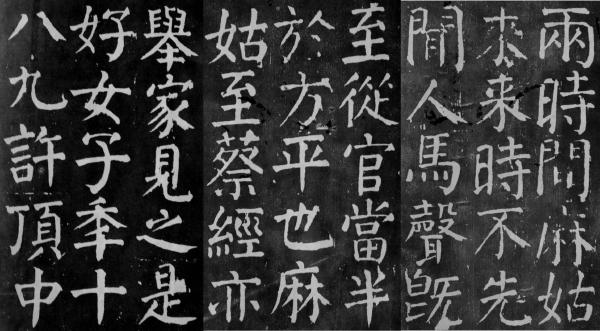 兩時間麻姑
来来時不先
聞人馬聲既
至從官當半
於方平也麻
姑至蔡經亦
舉家見之是
好女子年十
八九許頂中